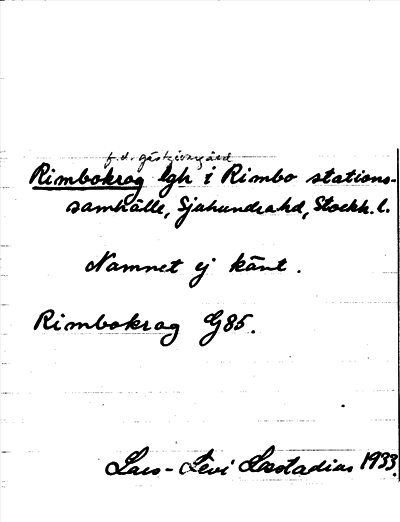 f.d. gästgivargård
Rimbokrog lgh i Rimbo stations-
samhälle, Sjuhundra hd, Stockh. l.
Namnet ej känt.
Rimbokrog G85.
Lars-Levi Læstadius 1933.